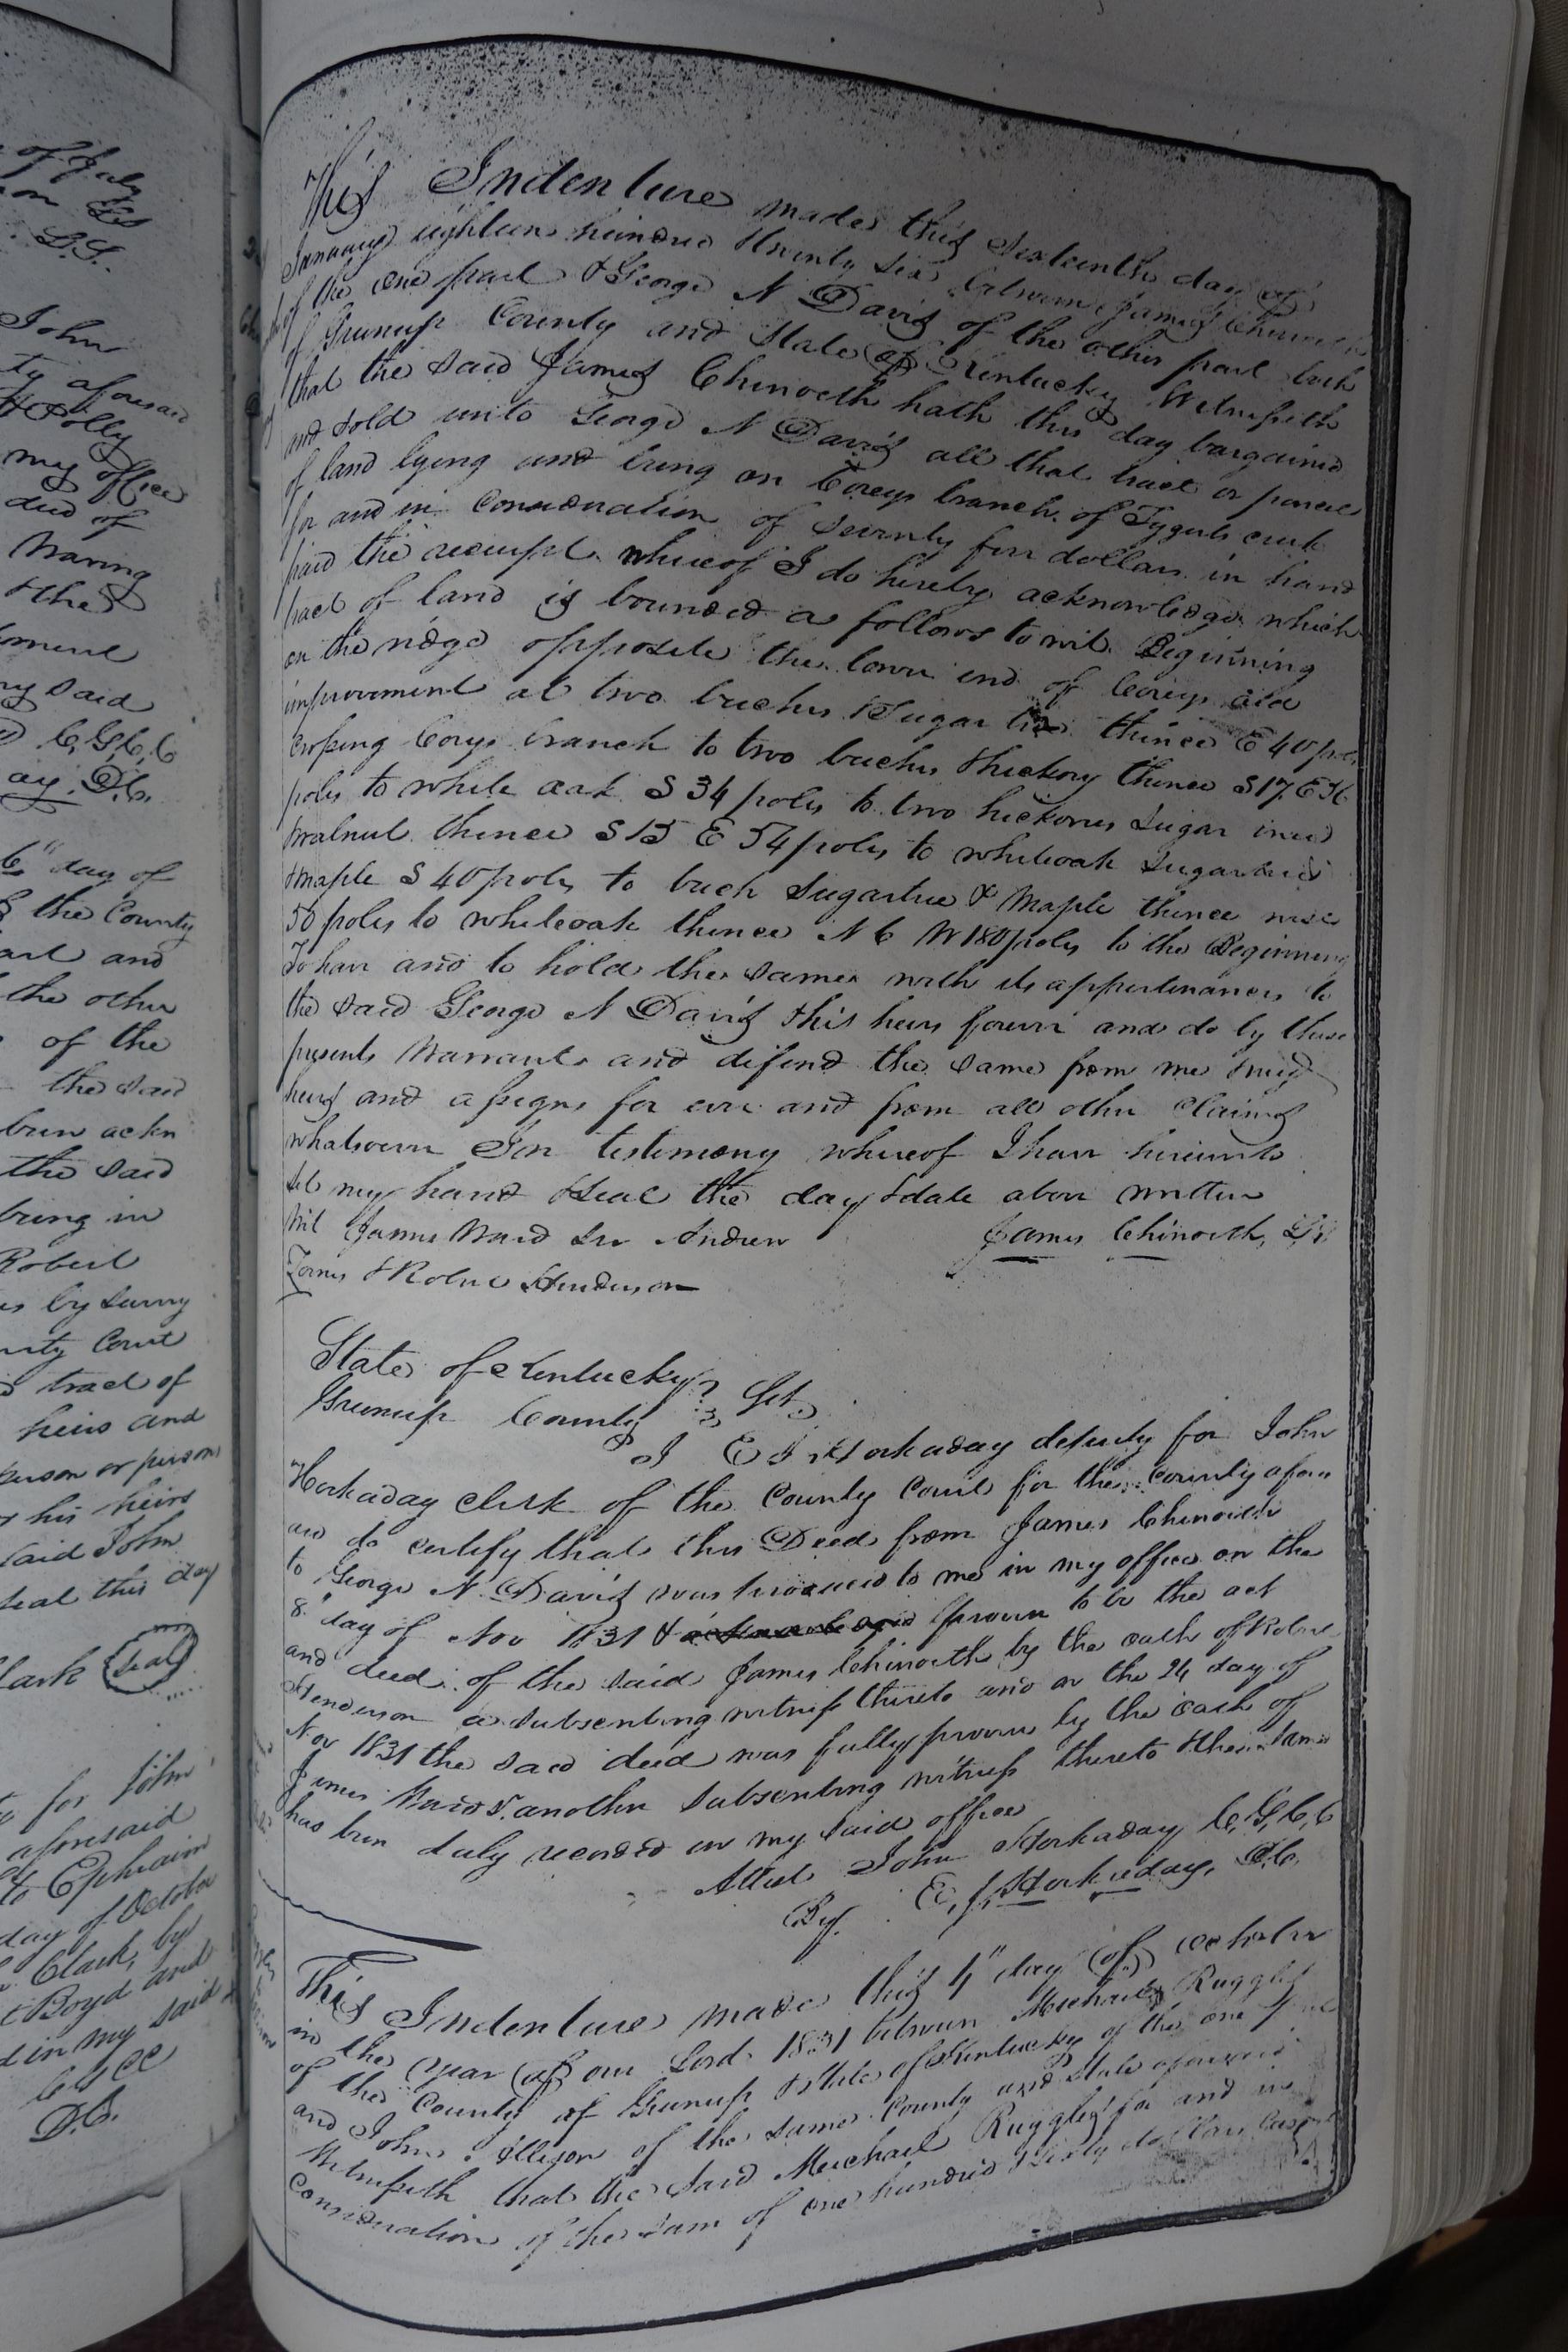 of July
John
ty aforesaid
& Polly
my office
deed of
Waring
& the
ment
ry said
C.G.C.C
ay. D.C.
6" day of
& the County
art and
the other
of the
the said
been ackn
the said
being in
Robert
es by survey
nty Court
tract of
heirs and
person or person
his heirs
said John
seal this day
Clark Seal
for John
aforesaid
to Ephraim
day of October
Clark, by
& Boyd and
d in my said
D.C.
This Indenture made this Sixteenth day of
January eighteen hundred & twenty six between James Chinoeth
of the one part & George N Davis of the other part both
of Greenup County and State of Kentucky Witnesseth
that the said James Chinoeth hath this day bargained
and sold unto George N Davis all that tract or parcel
of land lying and being on Coreys branch of Tygerts creek
for and in Consideration of Seventy five dollars in hand
paid the receipt whereof I do hereby acknowledge which
tract of land is bounded as follows to wit Beginning
on the ridge opposite the lower end of Coreys old
improvement at two buches & Sugar tree thence E 40 poles
crossing Corys branch to two buches & hickory thence S 17 E 56
poles to white oak S 34 poles to two hickories Sugar tree
& walnut thence S 15 E 54 poles to whiteoak Sugartree
& maple S 40 poles to buch Sugartree & Maple thence west
50 poles to whiteoak thence N 6 W 180 poles to the Beginning
To have and to hold the same with its appertenances to
the said George N Davis & his heirs forever and do by these
presents Warrant and defend the same from me & my
heirs and assigns for ever and from all other Claims
whatsoever In testimony whereof I have hereunto
set my hand & Seal the day & date above written
Wit James Ward Snr Andrew James Chinoeth, LS
Zornes & Robert Henderson
State of Kentucky
Greenup County Sct.
I E J Hockaday deputy for John
Hockaday clerk of the County Court for the county afore
said do certify that this Deed from James Chinoeth
to George N. Davis was produced to me in my office on the
8" day of Nov 1831 & proven to be the act
and deed of the said James Chinoeth by the oath of Robert
Henderson a subscribing witness thereto and on the 24 day of
Nov 1831 the said deed was fully proven by the oath of
James Ward S. another subscribing witness thereto & the same
has been duly recorded in my said office
Attest John Hockaday C,G,C,C
By E, J, Hockaday, D.C.
This Indenture made this 4" day of october
in the year of our Lord 1831 between Michael Ruggles
of the County of Greenup & State of Kentucky of the one part
and John Ellison of the same County and State aforesaid
Witnesseth that the said Meichael Ruggles for and in
Consideration of the sum of one hundred & sixty dollars